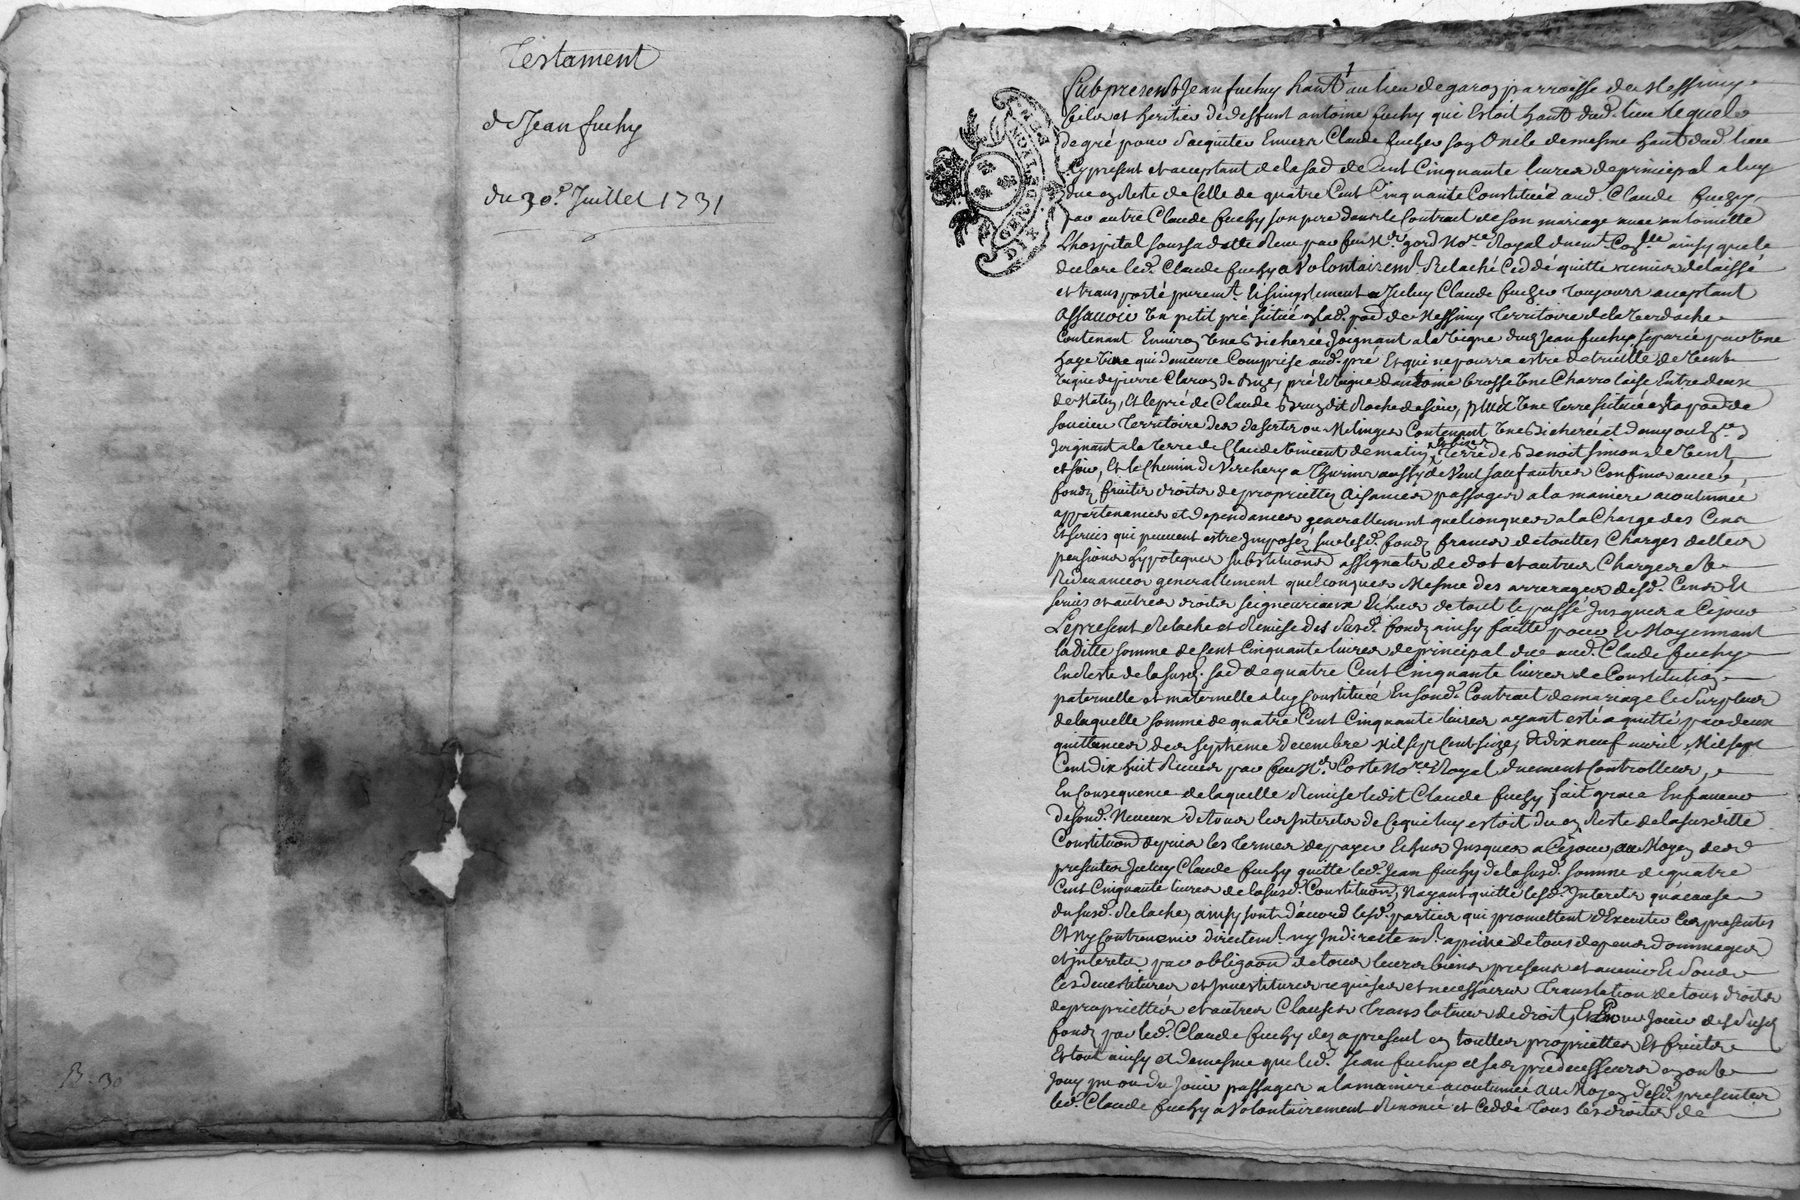 Testament
de Jean fuchy
du 30e. Juillet 1731
B: 30
GEN. DE LYON
Jean fuchy hant. au lieu de garoz parroisse de Messimy
fils et heritier de deffunt antoine fuchy qui Estoit hant. dud. lieu lequel
de gré pour s'acquiter Envers Claude fuchy soy Oncle de mesme hant. dud. lieu
Cy present et acceptant de la so. de Cent Cinquante livres de principal a luy
due en Reste de Celle de quatre Cent Cinquante Constituée aud. Claude fuchy
par autre Claude fuchy son pere dans le Contrat de son mariage avec antoinette
Lhospital sou sa datte Receu par feu Mr. gord Nore. Royal duemt. Coller. ainsy que le
declare led. Claude fuchy a Volontairemt. Relaché Ceddé quitté remis delaissé
et transporté puremt. et simplement a Iceluy Claude fuchy toujours acceptant
Assavoir Un petit pré situé en lad. parr. de Messimy Territoire de la Verdache
Contenant Environ Une Bicherée Joignant a la Vigne dud. Jean fuchy separée par Une
haye Vive qui demeure Comprise aud. pré Et qui ne pourra estre detruitte, de Vent
Vigne de pierre de Bize, pré Et Vigne d'antoine brosse Une Charrolaise Entre deux
de Matin, et le pré de Claude dit Roche de soir, plus Une Terre située en la parr. de
soucieu Territoire des deserts ou Melinges Contenant Une Bicherée et demy ou Environ
Joignant a la Terre de Claude Vincent de matin Et bize, Terre de Benoit simon de Vent
et soir, Et le Chemin de Verchery a Thurins aussy de Vent sauf autres Confins avec
fondz fruits droits de proprietés aisances passages a la maniere acoutumée
appartenances et dependances generallement quelconques a la Charge des Cens
Et servis qui peuvent estre Imposez sur lesd. fondz francs de touttes Charges dalleur
pensions hypoteques substitutions assignats de dot et autres Charges et
Redevances generallement quelconques Mesme des arrerages desd. Cens Et
servis et autres droits seigneuriaux Echus de tout le passé Jusques a Ce jour
Le present Relache et Remise des susd. fondz ainsy faitte pour et Moyennant
laditte somme de Cent Cinquante livres de principal due aud. Claude fuchy
En Reste de la susd. so. de quatre Cent Cinquante livres de Constitution
paternelle et maternelle a luy Constituée En sond. Contrat de mariage le surplus
de laquelle somme de quatre Cent Cinquante livres ayant esté aquitté par deux
quittances des septieme decembre Mil sept Cent seize, Et dix neuf avril Mil sept
Cent Dix huit Receues par feu Mr. Coste Nore. Royal duement Controllées,
En Consequence de laquelle Remise ledit Claude fuchy fait grace En faveur
de sond. Neveux de tous les Interets de Ce qui luy estoit du en Reste de la susditte
Constitution depuis les termes de payer Echus Jusques a Ce jour, au Moyen des
presentes Iceluy Claude fuchy quitte led. Jean fuchy de la susd. somme de quatre
Cent Cinquante livres de la susd. Constitution, Nayant quitté lesd. Interets qu'acause
du susd. Relache, ainsy sont d'accord lesd. parties qui promettent d'Executer Ces presentes
Et Ny Contrevenir directemt. ny Indirectemt. a peine de tous depens dommages
et interets par obligaon de tous leurs biens presens et avenir Et sous
les devestitures et Investitures requises et necessaires Translation de tous droits
de proprietés et autres Clauses Translatives de droit, Et Pour Jouir desd. susd.
fondz par led. Claude fuchy des a present en touttes proprietés Et fruits
Et tout ainsy et de mesme que led. Jean fuchy et ses predecesseurs en ont
Jouy pu ou du Jouir passages a la maniere acoutumée Au Moyen desd. presentes
led. Claude fuchy a Volontairement Renoncé et Ceddé Tous les droits de